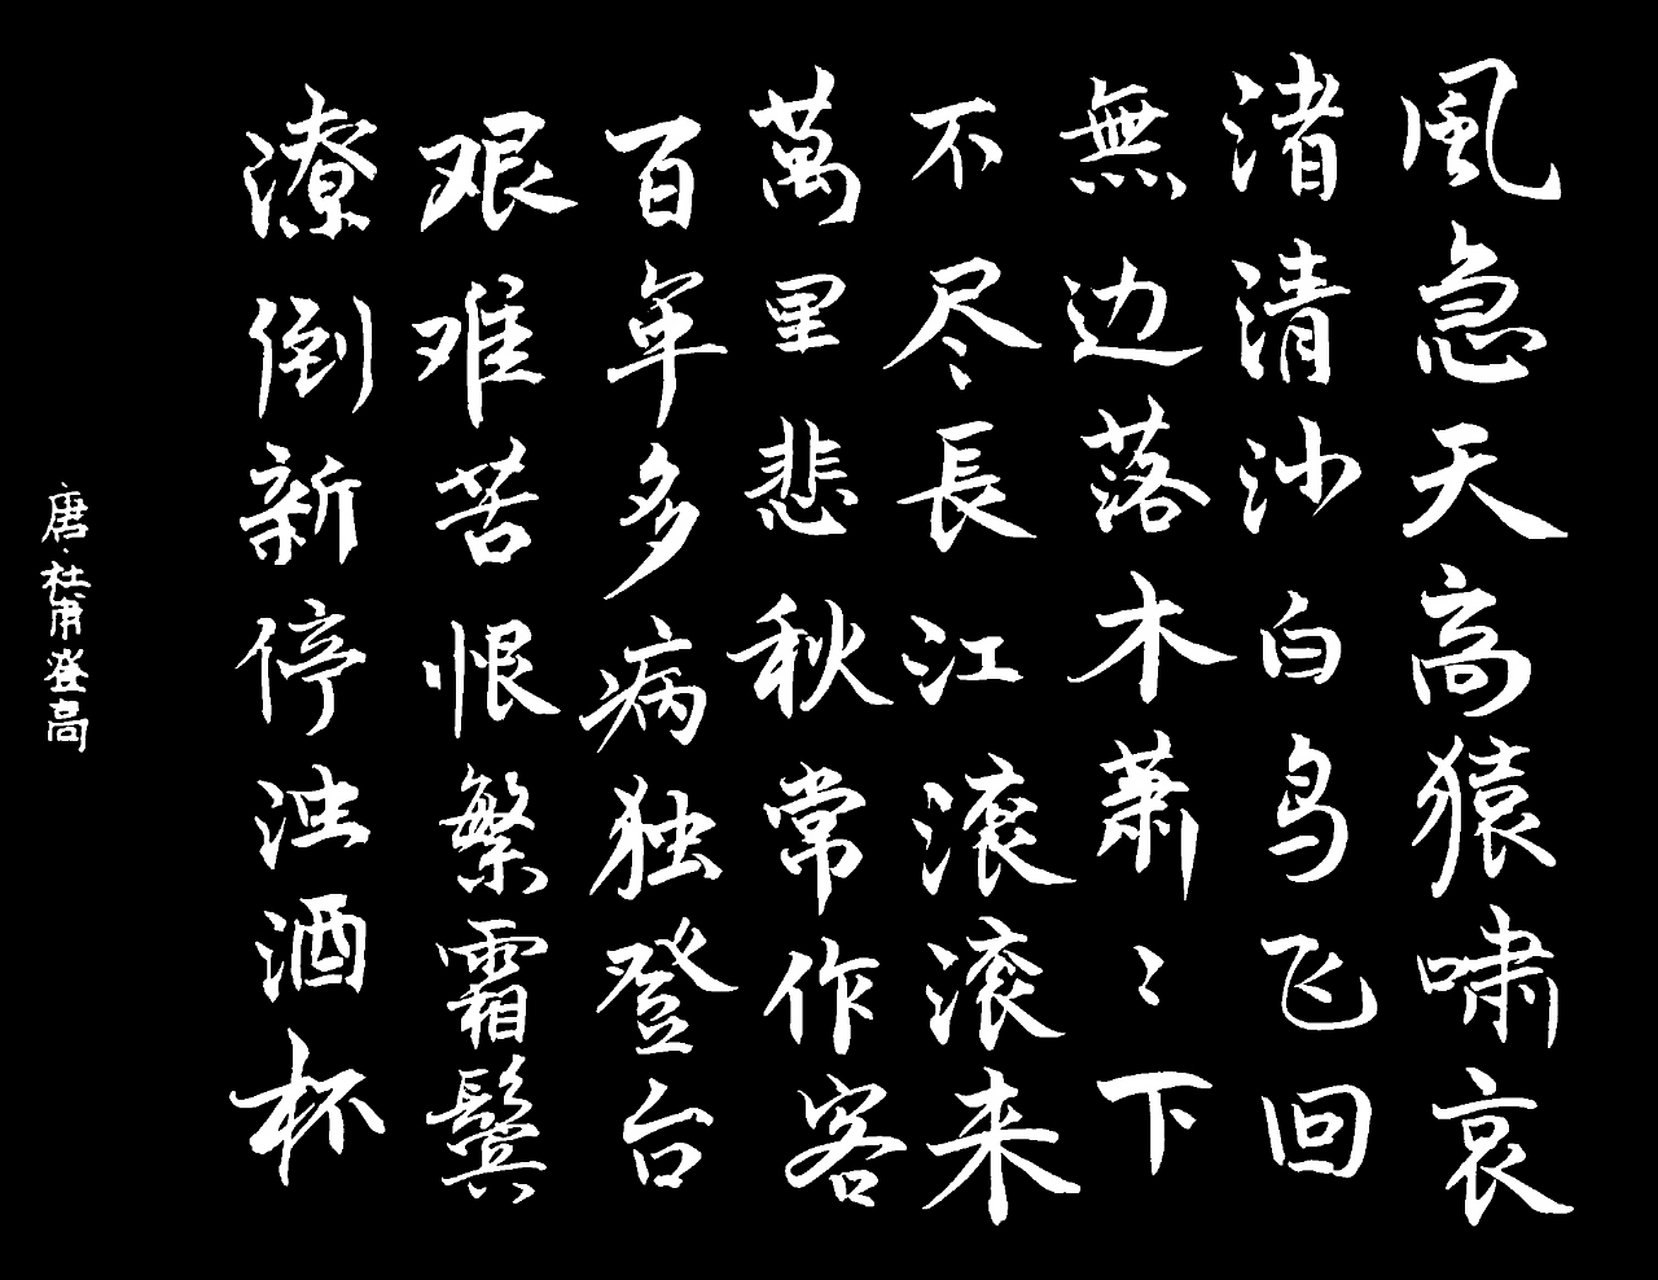 風急天高猿啸哀
渚清沙白鸟飞回
無边落木萧〻下
不尽長江滚滚来
萬里悲秋常作客
百年多病独登台
艰难苦恨繁霜鬓
潦倒新停浊酒杯
唐·杜甫登高